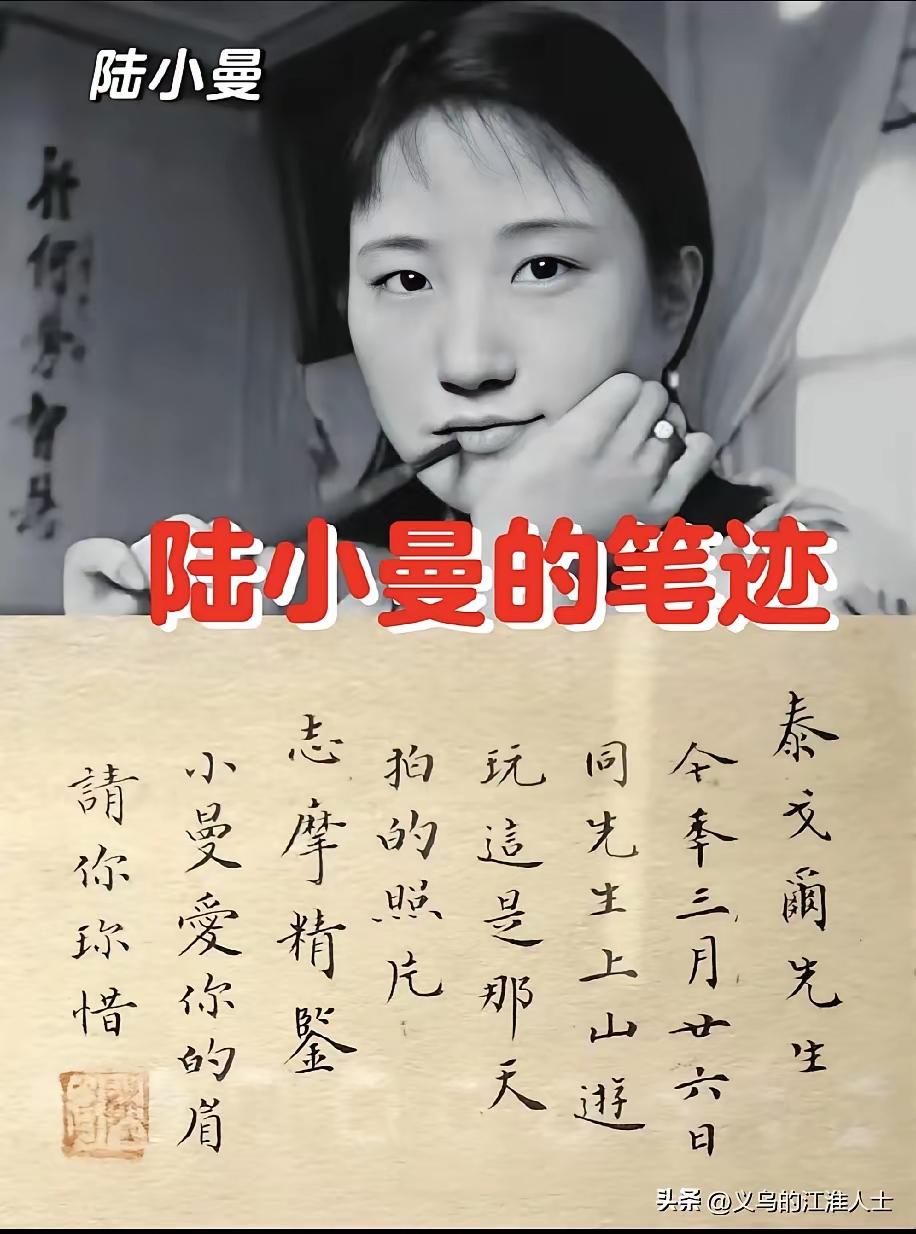 陆小曼
陆小曼的笔迹
泰戈爾先生
今年三月廿六日
同先生上山遊
玩這是那天
拍的照片
志摩精鑒
小曼愛你的眉
請你珎惜
头条 @义乌的江淮人士